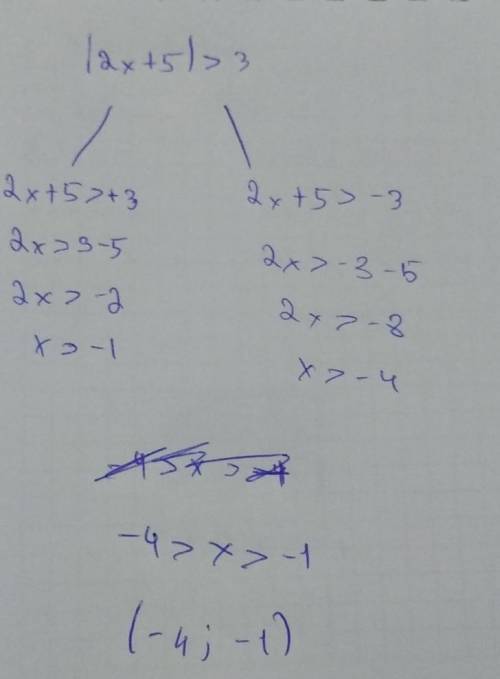 |2x+5|>3
2x+5>+3
2x>3-5
2x>-2
x>-1
2x+5>-3
2x>-3-5
2x>-8
x>-4
-4>x>-1
(-4; -1)